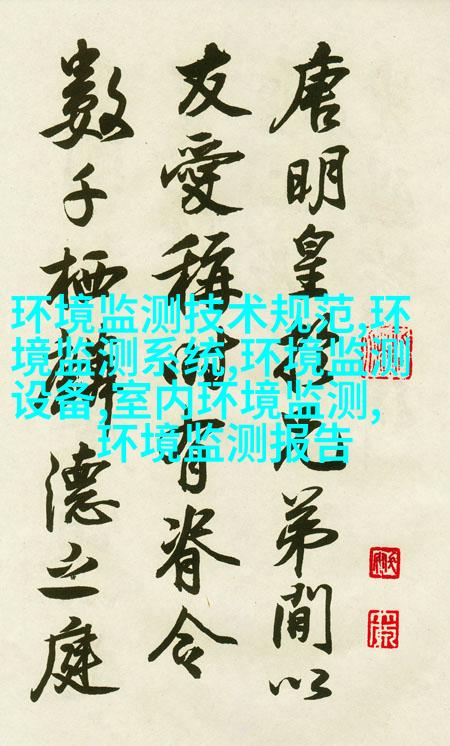 唐明皇於兄弟間以
友愛稱時有脊令
數千栖麟德之庭
环境监测技术规范,环
境监测系统,环境监测
设备,室内环境监测,
环境监测报告